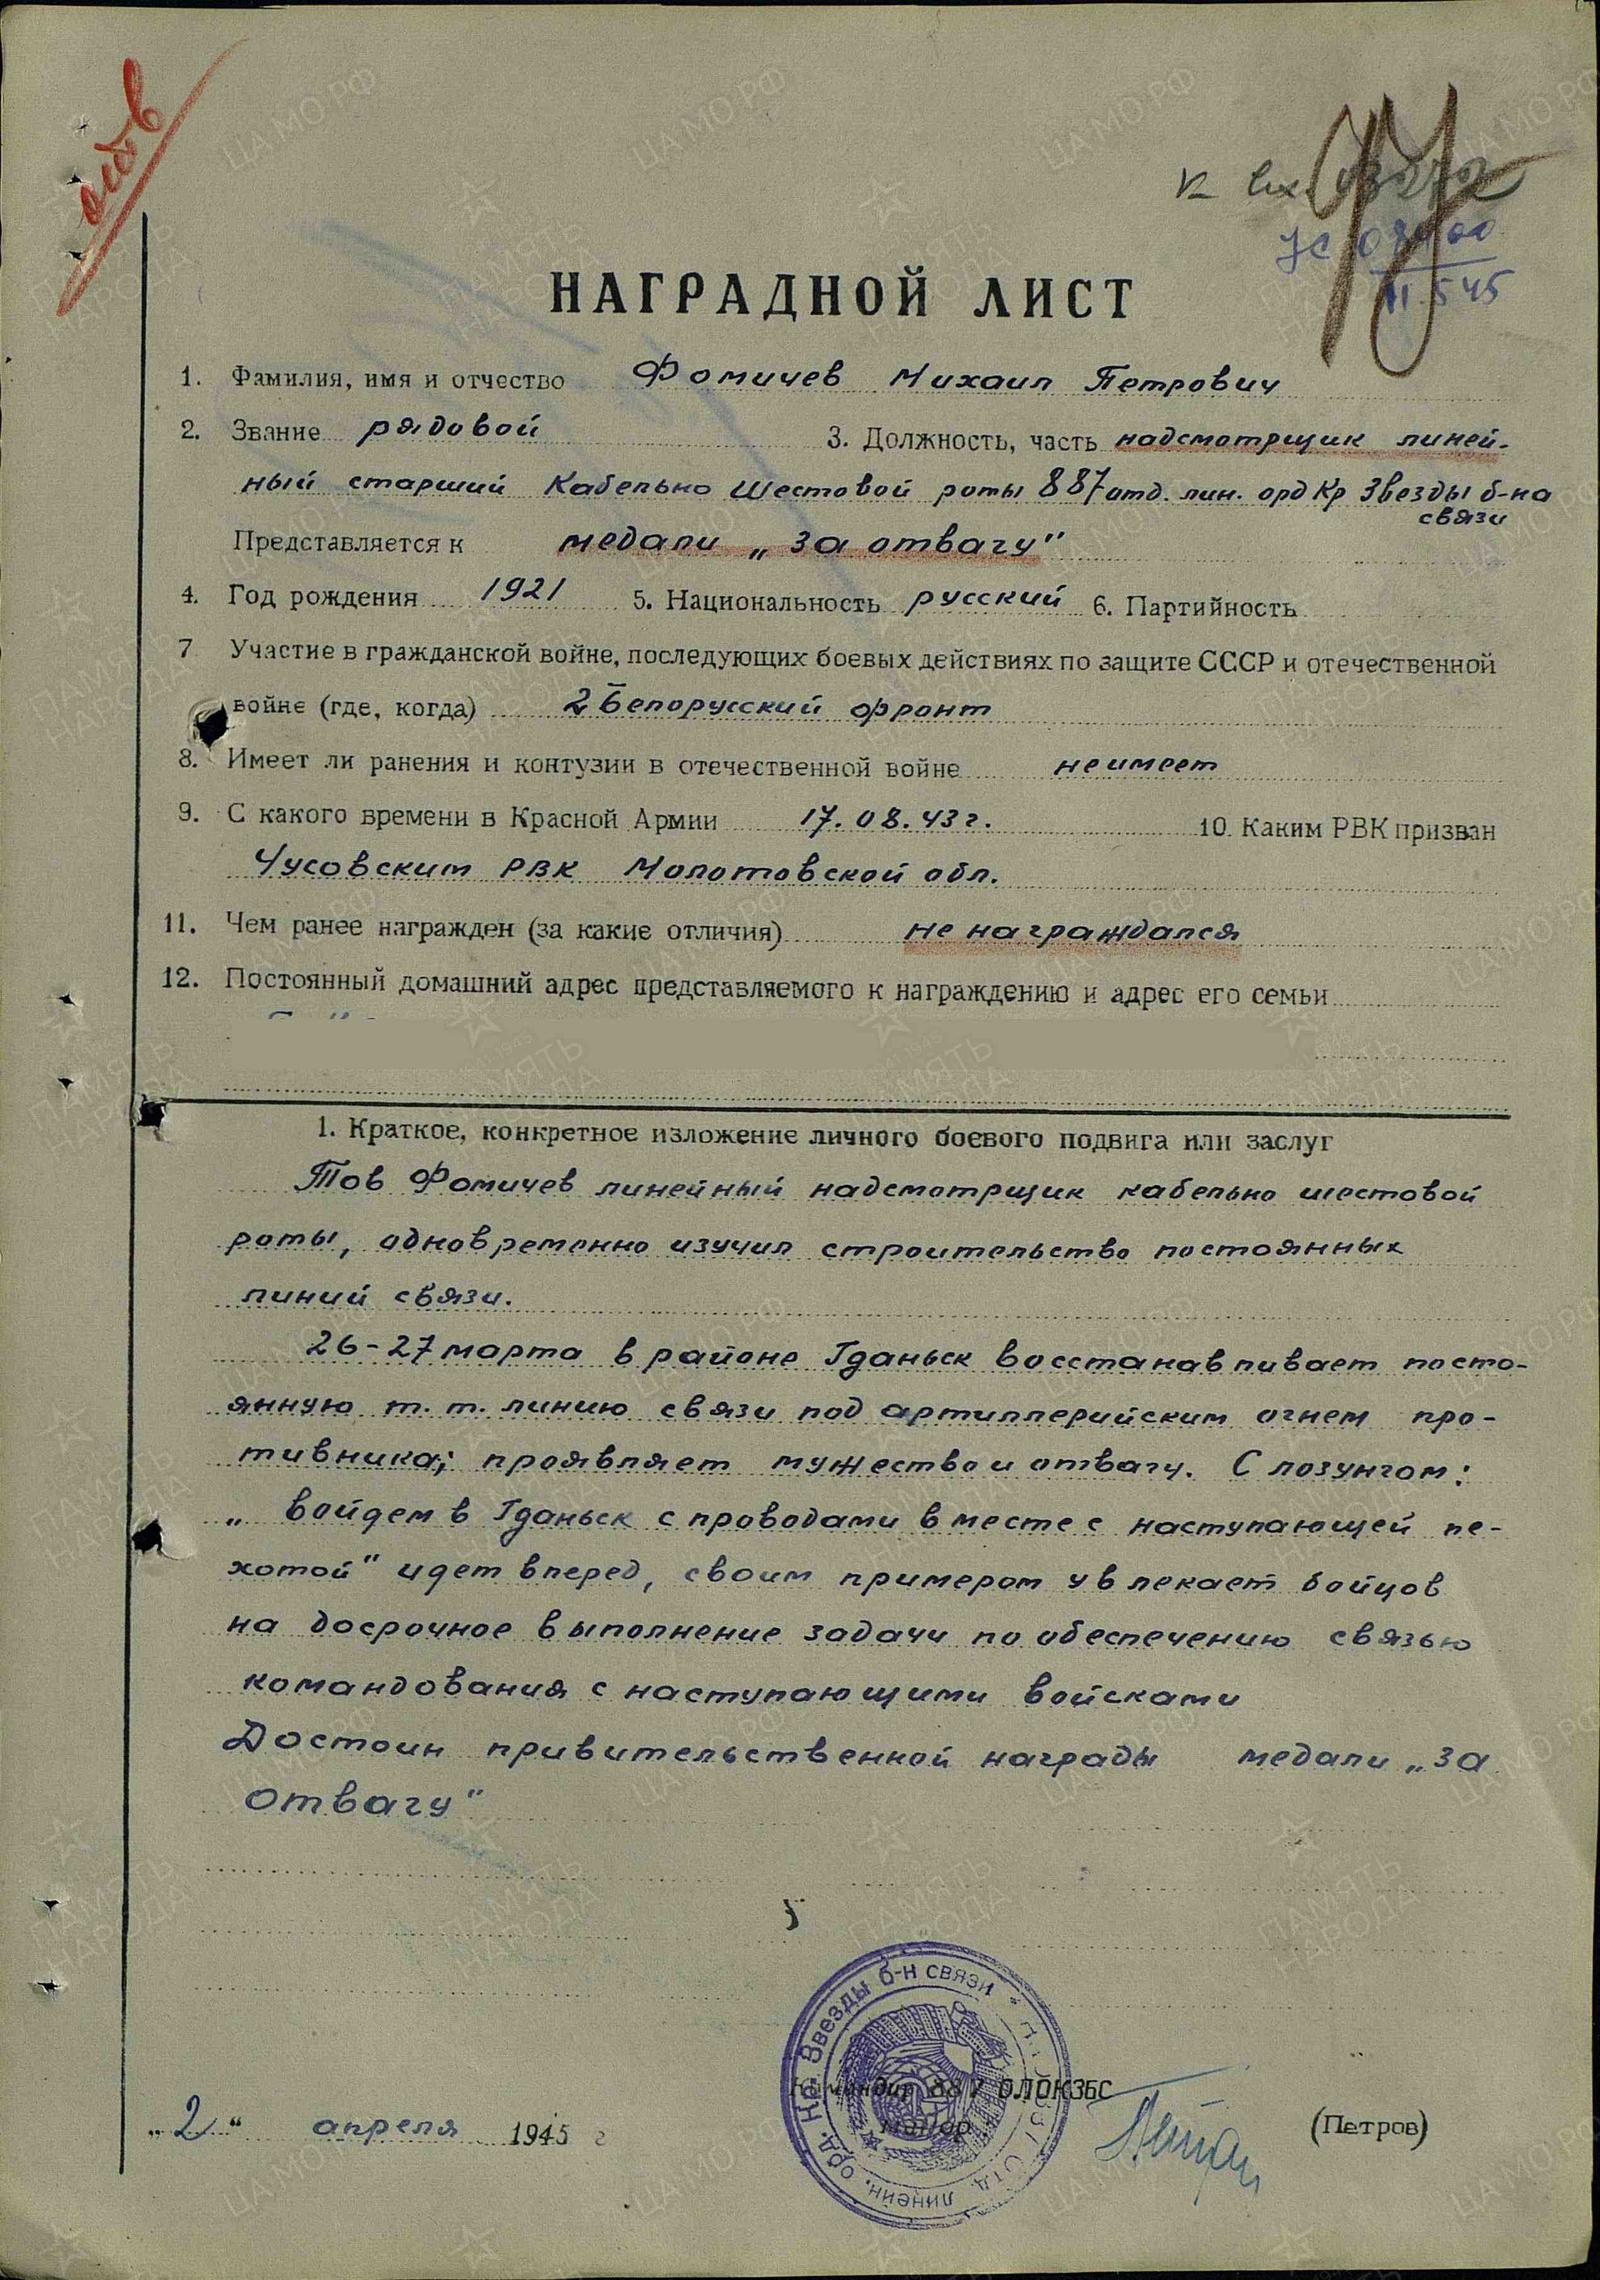 НАГРАДНОЙ ЛИСТ
1. Фамилия, имя и отчество Фомичев Михаил Петрович
2. Звание рядовой 3. Должность, часть надсмотрщик линей-
ный старший Кабельно Шестовой роты 887 отд. лин. орд Кр Звезды б-на
связи
Представляется к медали „за отвагу"
4. Год рождения 1921 5. Национальность русский 6. Партийность
7 Участие в гражданской войне, последующих боевых действиях по защите СССР и отечественной
войне (где, когда) 2 Белорусский фронт
8. Имеет ли ранения и контузии в отечественной войне не имеет
9. С какого времени в Красной Армии 17.08.43 г. 10. Каким РВК призван
Чусовским РВК Молотовской обл.
11. Чем ранее награжден (за какие отличия) не награждался
12. Постоянный домашний адрес представляемого к награждению и адрес его семьи
1. Краткое, конкретное изложение личного боевого подвига или заслуг
Тов Фомичев линейный надсмотрщик кабельно шестовой
роты, одновременно изучил строительство постоянных
линий связи.
26-27 марта в районе Гданьск восстанавливает посто-
янную т. т. линию связи под артиллерийским огнем про-
тивника; проявляет мужество и отвагу. С лозунгом:
„войдем в Гданьск с проводами вместе с наступающей пе-
хотой" идет вперед, своим примером увлекает бойцов
на досрочное выполнение задачи по обеспечению связью
командования с наступающими войсками
Достоин привительственной награды медали „за
отвагу"
Командир 887 ОЛОКЗБС
майор
„2" апреля 1945 г
(Петров)
линейн. орд. Кр. Звезды б-н связи
ЦАМО.РФ
ПАМЯТЬ НАРОДА